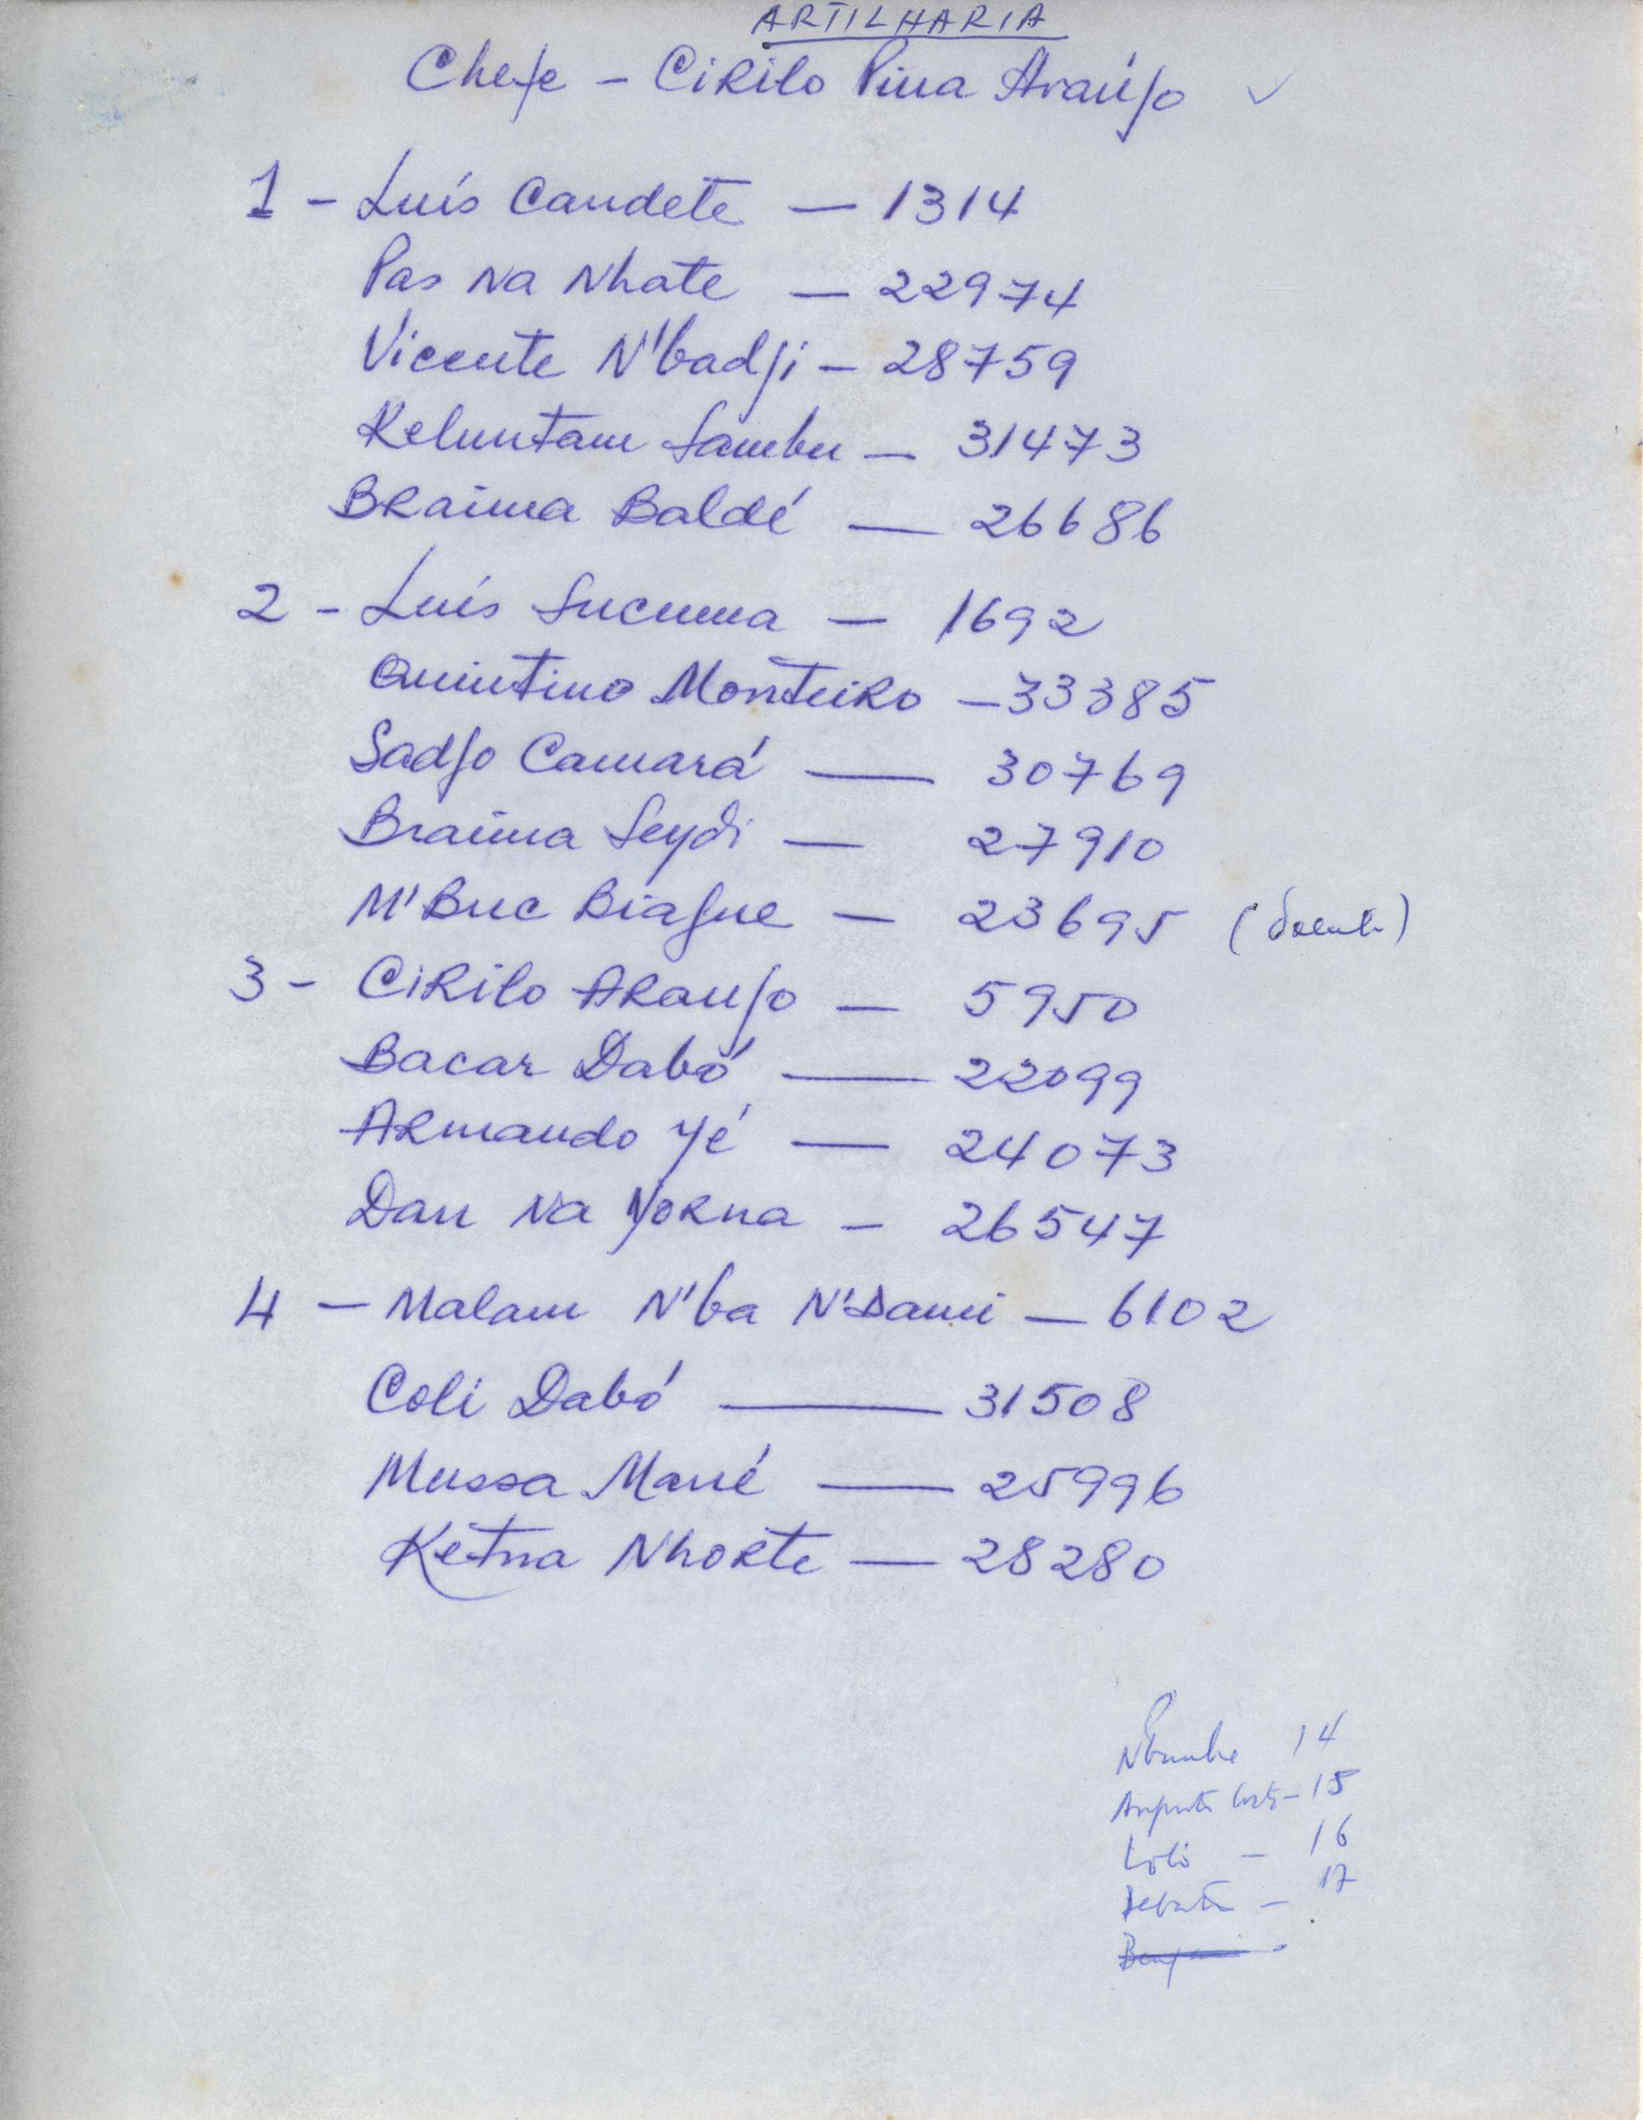 ARTILHARIA
Chefe - Cirilo Pina Araújo ✓
1 - Luís Candete - 1314
Pas Na Nhate - 22974
Vicente N'badji - 28759
Keluntam Sambu - 31473
Braima Baldé - 26686
2 - Luís Sucuma - 1692
Quintino Monteiro - 33385
Sadjo Camará - 30769
Braima Seydi - 27910
M'Buc Biague - 23695 (doente)
3 - Cirilo Araujo - 5950
Bacar Dabó - 22099
Armando Yé - 24073
Dan Na Yorna - 26547
4 - Malam N'ba N'Dami - 6102
Coli Dabó - 31508
Mussa Mané - 25996
Ketna Nhorte - 28280
14
- 15
- 16
- 17